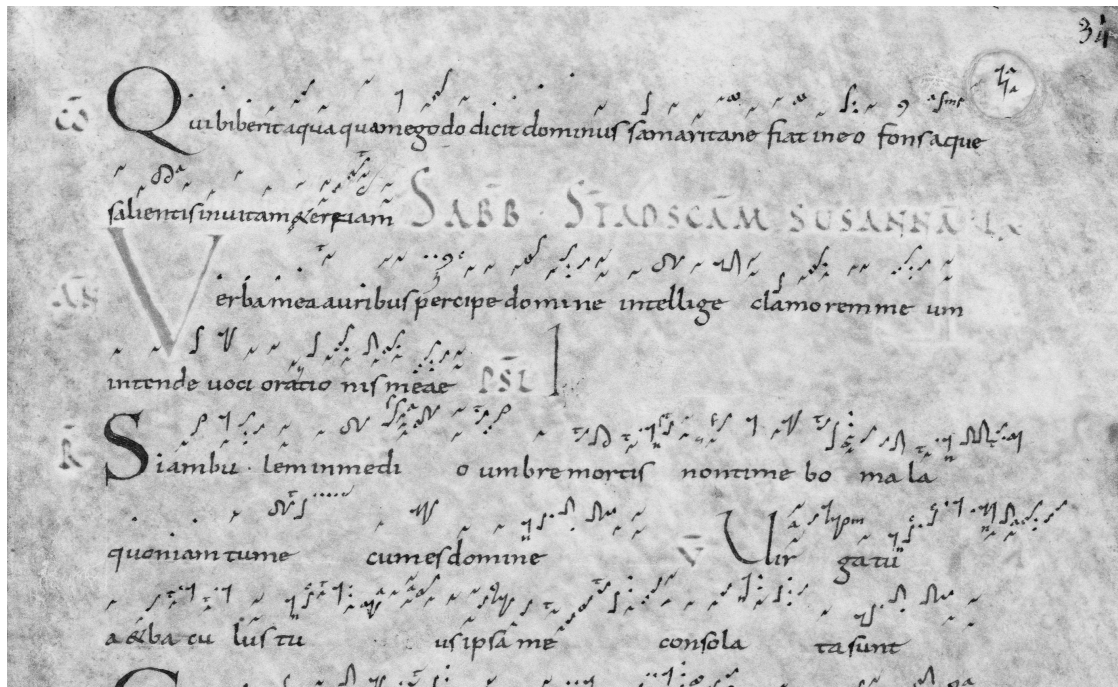 34
CŌ Qui biberit aqua quam ego do dicit dominus samaritane fiat in eo fons aque
salientis in vitam &ternam SABB · STAD SCAM SUSANNA
AN Verba mea auribus percipe domine intellige clamorem me um
intende voci oratio nis meae PSL
R Si ambu · lem in medi o umbre mortis non time bo ma la
quoniam tu me cum es domine V Uir ga tu
a &ba cu lus tu us ipsa me consola ta sunt